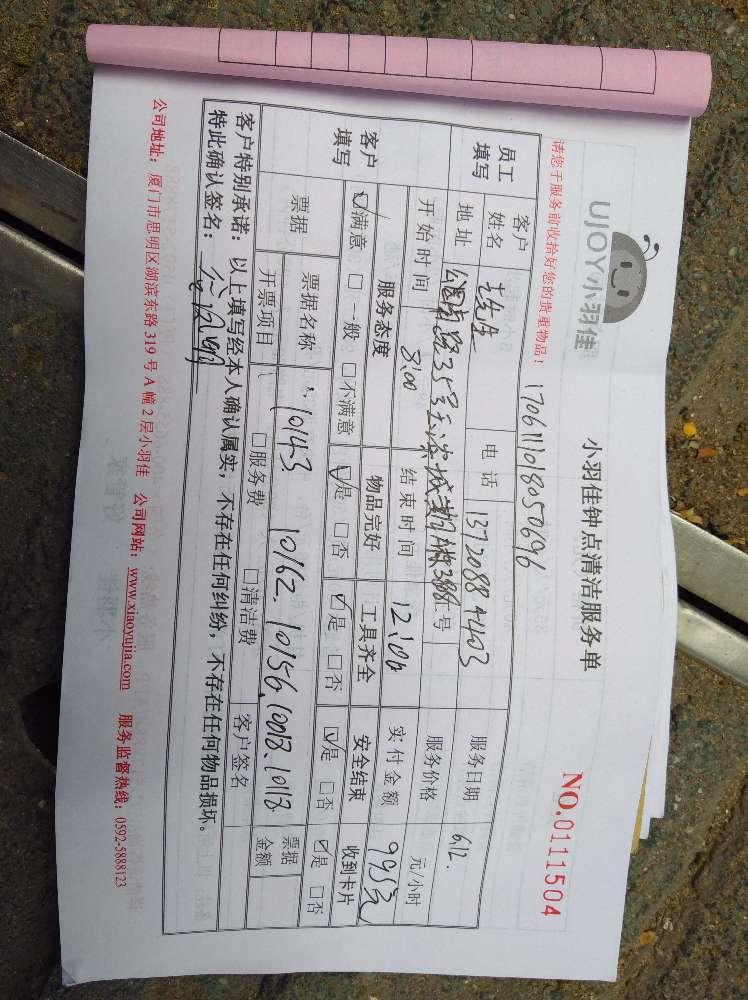 UJOY小羽佳
小羽佳钟点清洁服务单
NO.0111504
请您于服务前收拾好您的贵重物品！
170611018050696
员工填写 客户姓名 电话 服务日期 6.12.
地址 服务价格 元/小时
开始时间 8:00 结束时间 12:00 实付金额 995元
客户填写 服务态度 物品完好 工具齐全 安全结束 收到卡片
☑满意 □一般 □不满意 ☑是 □否 ☑是 □否 ☑是 □否 ☑是 □否
票据 票据名称 10143 10162. 10156. 10013. 10113 票据金额
开票项目 □服务费 □清洁费 客户签名
客户特别承诺：以上填写经本人确认属实，不存在任何纠纷，不存在任何物品损坏。
特此确认签名：
公司地址：厦门市思明区湖滨东路 319 号 A 幢 2 层小羽佳 公司网站：www.xiaoyujia.com 服务监督热线：0592-5888123